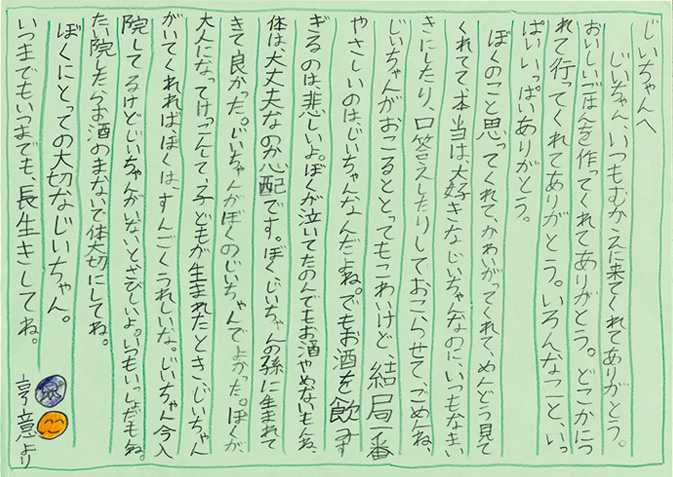 じいちゃんへ
じいちゃん、いつもむかえに来てくれてありがとう。
おいしいごはんを作ってくれてありがとう。どこかにつ
れて行ってくれてありがとう。いろんなこと、いっ
ぱいいっぱいありがとう。
ぼくのこと思ってくれて、かわいがってくれて、めんどう見て
くれてて、本当は、大好きなじいちゃんなのに、いつもなまい
きにしたり、口答えしたりしておこらせて、ごめんね、
じいちゃんがおこるととってもこわいけど、結局一番
やさしいのは、じいちゃんなんだよね。でもお酒を飲みす
ぎるのは、悲しいよ。ぼくが泣いてたのんでもお酒やめないもんね、
体は、大丈夫なのか心配です。ぼく、じいちゃんの孫に生まれて
きて良かった。じいちゃんがぼくのじいちゃんでよかった。ぼくが、
大人になってけっこんして、子どもが生まれたとき、じいちゃん
がいてくれれば、ぼくは、すんごくうれしいな。じいちゃん今入
院してるけどじいちゃんがいないとさびしいよ。いつもいっしだもんね。
たい院したらお酒のまないで体大切にしてね。
ぼくにとっての大切なじいちゃん。
いつまでもいつまでも、長生きしてね。
意より